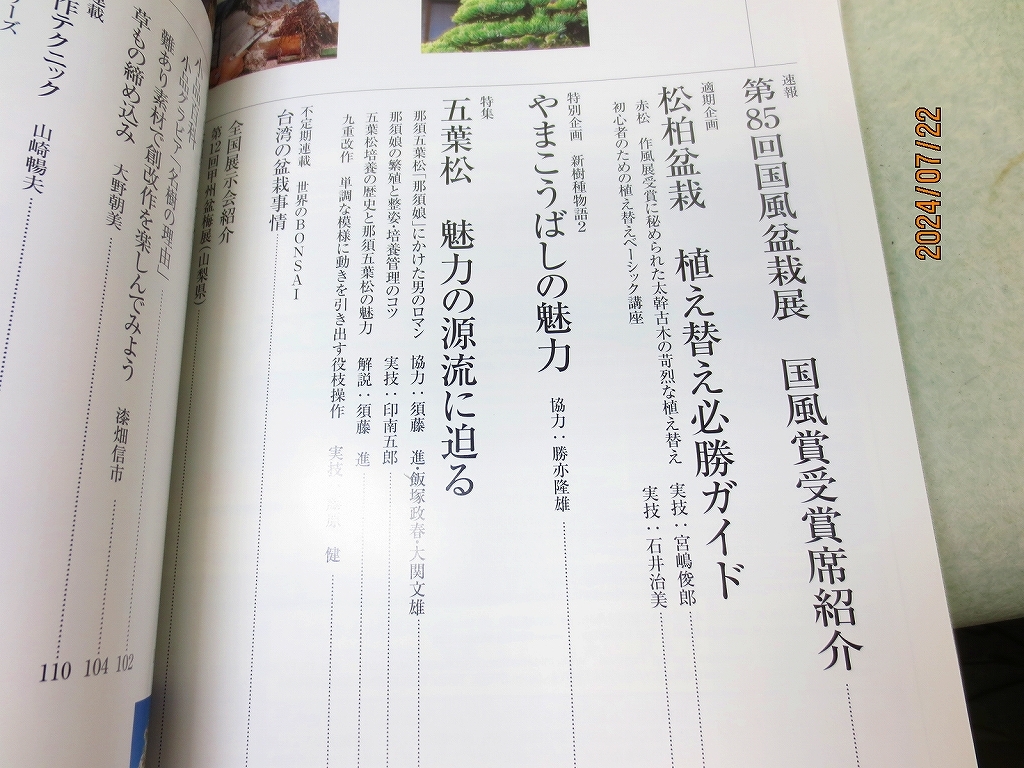 速報
第85回国風盆栽展 国風賞受賞席紹介
適期企画
松柏盆栽 植え替え必勝ガイド
赤松 作風展受賞に秘められた太幹古木の苛烈な植え替え 実技：宮嶋俊郎
初心者のための植え替えベーシック講座 実技：石井治美
特別企画 新樹種物語2
やまこうばしの魅力 協力：勝亦隆雄
特集
五葉松 魅力の源流に迫る
那須五葉松「那須娘」にかけた男のロマン 協力：須藤 進・飯塚政春・大関文雄
那須娘の繁殖と整姿・培養管理のコツ 実技：印南五郎
五葉松培養の歴史と那須五葉松の魅力 解説：須藤 進
九重改作 単調な模様に動きを引き出す役枝操作 実技： 健
不定期連載 世界のBONSAI
台湾の盆栽事情
全国展示会紹介
第12回甲州盆梅展（山梨県）
小品百科
小品グラビア「名樹の理由」 102
難あり素材で創改作を楽しんでみよう 漆畑信市 104
草もの締め込み 大野朝美 110
連載
作テクニック 山崎暢夫
ーズ
2024/07/22